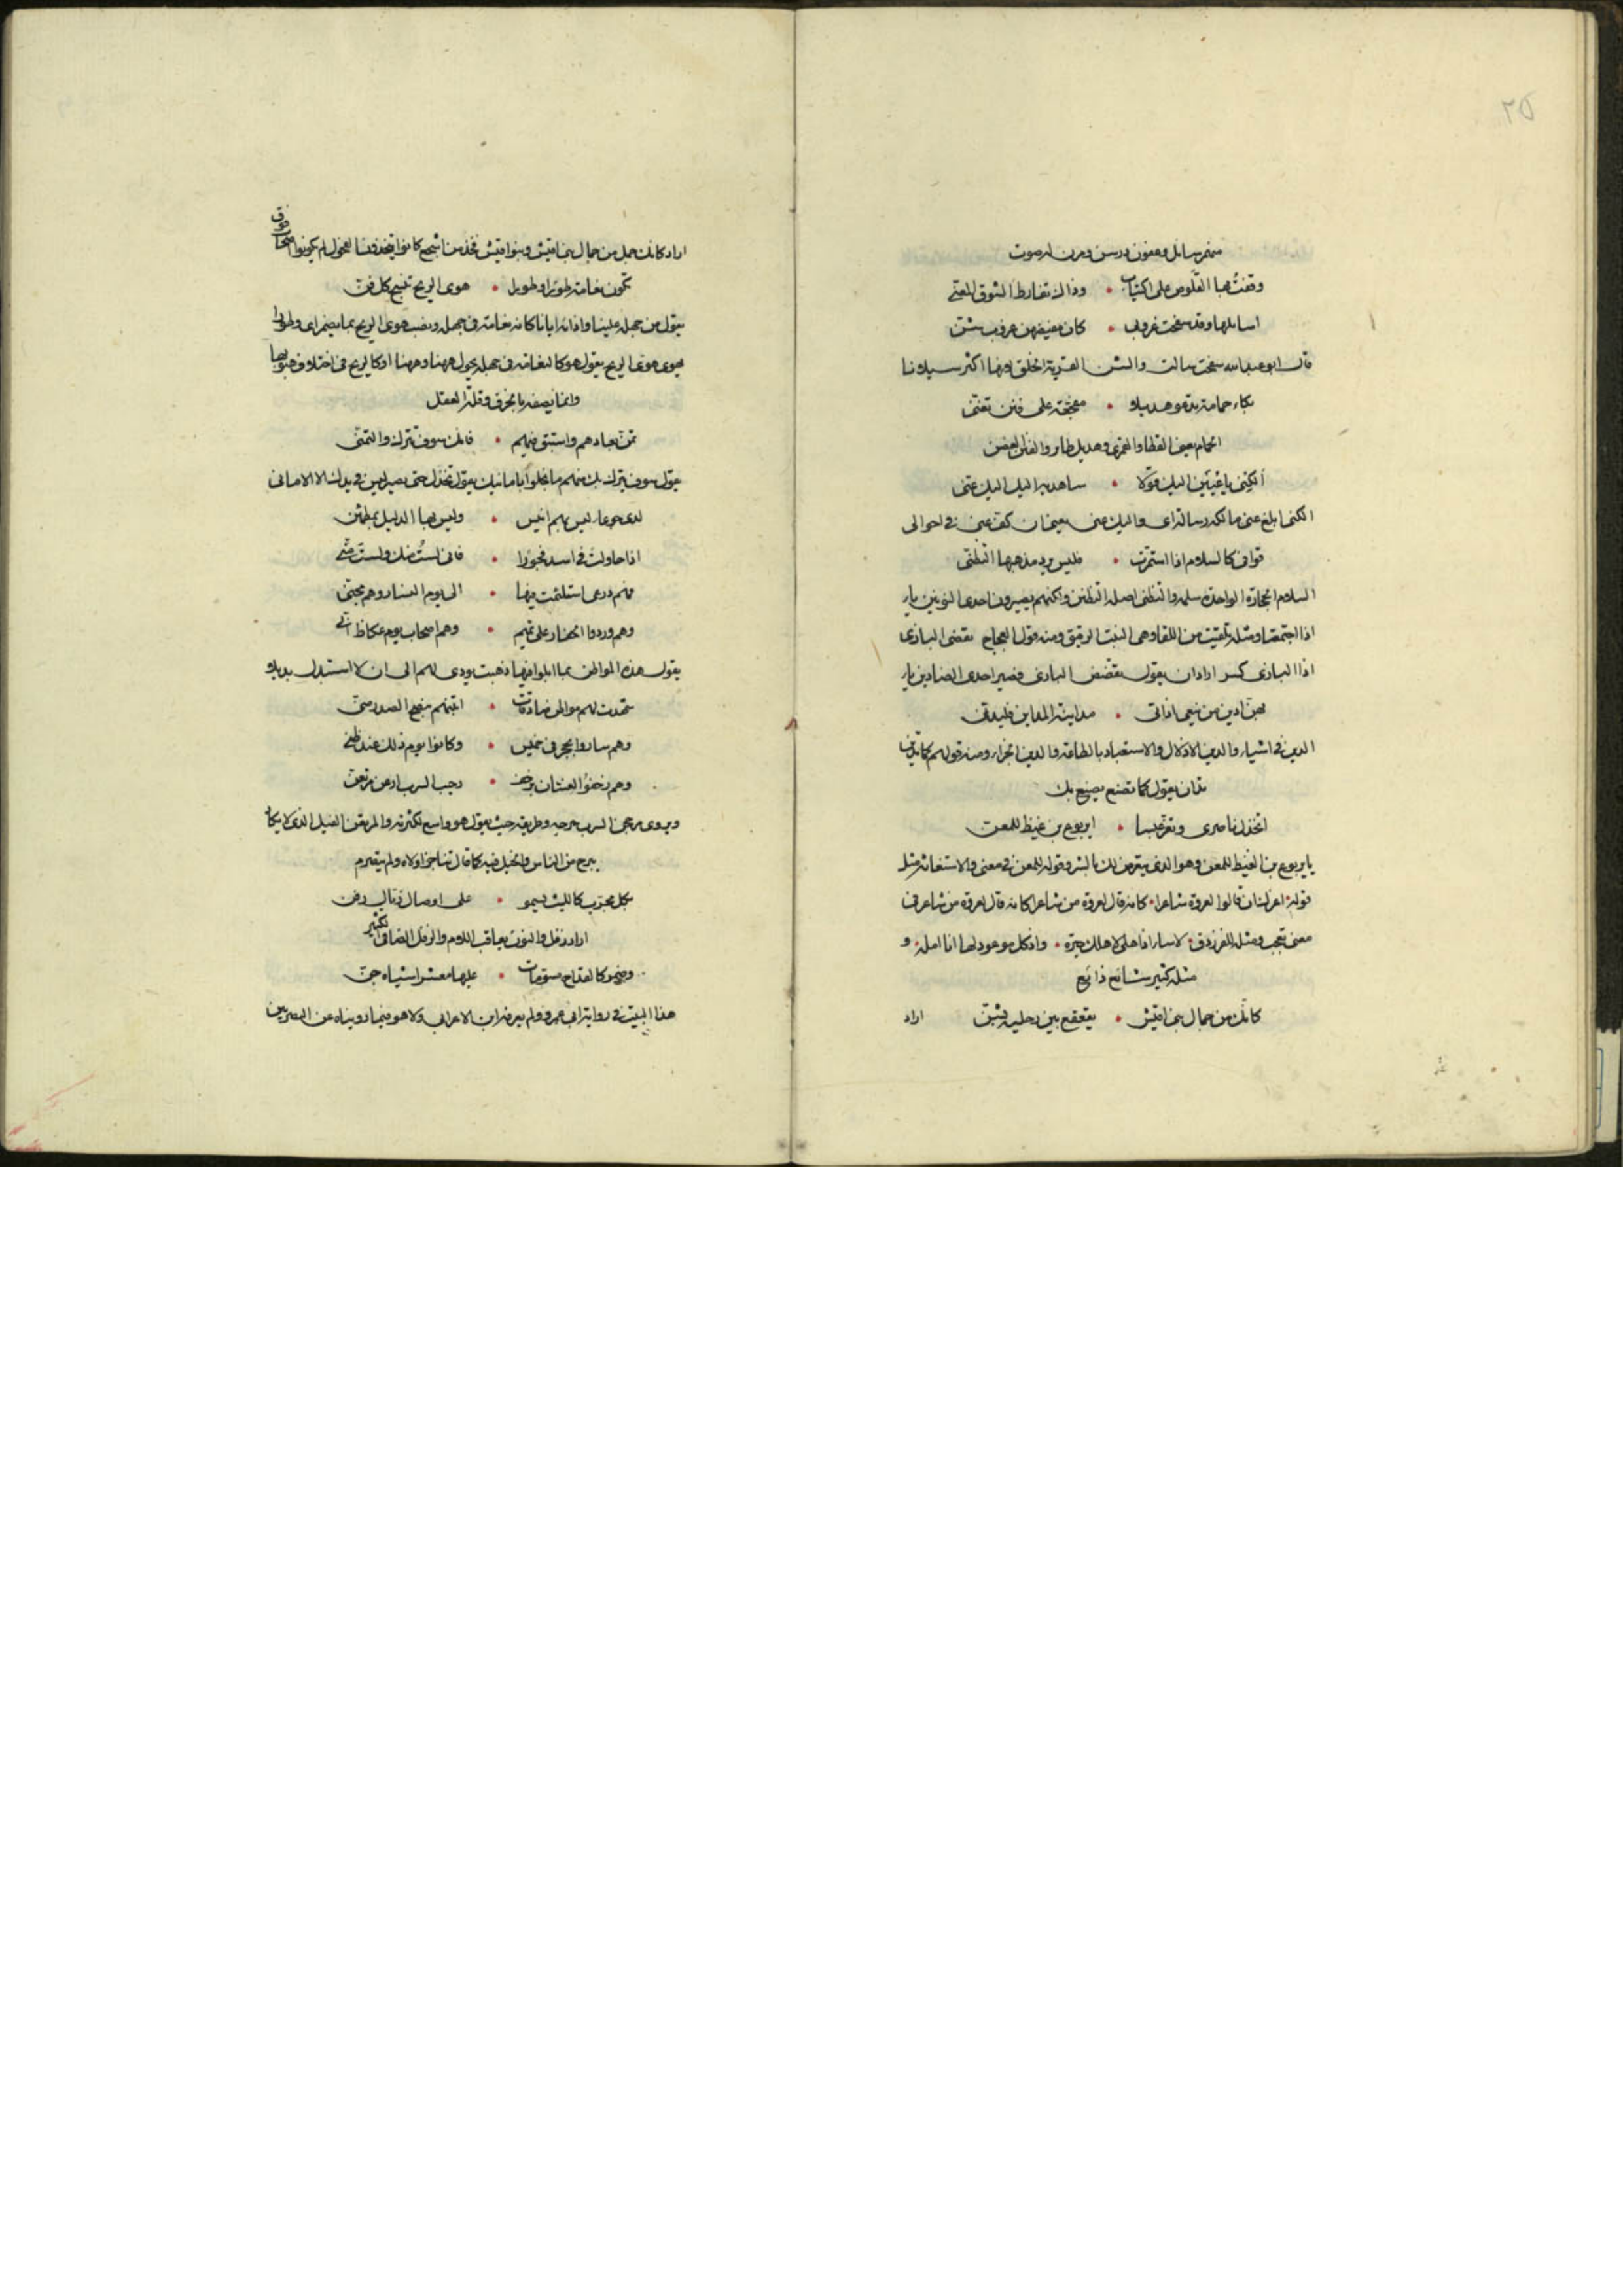 منهمر سائل وعفون درسن ومرن له صوت
وقفتُ بها القلوص على اكتياب • وذاك تفارط الشوق المعنّى
اسائلها وقد سفحت غروبى • كان مفيضهن غروب شنّ
قال ابو عبد الله سفحت سالت والشن القربة الخلق وبها اكثر سيلانا
بكاء حمامة تدعو هديلا • مفجّعة على فنن تغنّى
الحمام يعنى القطا والقمرى وهديل طائر والفنن الغصن
الكِنى ياعُيَيْن اليك قولا • ساهديه اليك اليك عنّى
الكنى ابلغ عنى مالكه رسالة اى واليك عنى يعنى ان كف عنى فى احوالى
قوافى كالسلام اذا استمرّت • فليس يرد مذهبها التظنّى
السلام الحجارة الواحدة سلمة والتظنى اصله التظنن ولكنهم يصيرون احدى النونين ياء
اذا اجتمعتا ومثله تلعّيت من اللعاعة وهى النبت الرقيق ومنه قول العجاج تقضى البازى
اذا البازى كسر اراد ان يقول تقضض البازى فصير احدى الضادين ياء
بهن ادين من يبغى اذاتى • مداينة المداين فليدنّى
الدين فى اشياء والدين الاذلال والاستعباد بالطاعة والدين الجزاء ومنه قولهم كما تدين
تدان يقول كما تصنع يصنع بك
اتخذل ناصرى وتعز عبسا • ايربوع بن غيظ للمعن
يا يربوع بن الغيظ للمعن وهو الذى يتعرض لك بالشر وقوله للمعن فى معنى والاستغاثة مثله
قوله • اعزلت ان قالوا لعروة شاعرا • كانه قال لعروة من شاعر كانه قال لعروة من شاعر فى
معنى تعجب ومثله للفرزدق • لاسار اذا هلى لاهلك جيرة • واذ كل موعود لها انا امله • و
مثله كثير شائع ذائع
كانك من جمال بنى اقيش • يقعقع بين رجليه بشنّ
اراد
اراد كانك جمل من جمال بنى اقيش وبنو اقيش فخذ من اشجع كانوا يتخذون الفحول لم يكونوا اصحاب
نوق
تكون نعامة طورا وطورا • هوى الريح تنسج كل فنّ
يقول من جهله علينا واذائه ايانا كانه نعامة فى جهله ونصب هوى الريح بما يضمر اى وطورا
يهوى هوى الريح يقول هو كالنعامة فى جهله يحول ههنا وههنا او كالريح فى اختلاف هبوبها
وانما يصفه بالخرق وقلة العقل
تمنّ بعادهم واستبق منهم • فانك سوف تترك والتمنّى
يقول سوف تترك بك منهم ما يخلو اياما نيك يقول تخذل حتى يصير ليس فى يدك الا الامانى
لدى جرعاء ليس بهم انيس • وليس بها الدليل بمطمئن
اذا حاولت فى اسد فجورا • فانى لستُ منك ولستَ منّى
فهم درعى استلئمت فيها • الى يوم النسار وهم مجنّى
وهم وردوا الجفار على تميم • وهم اصحاب يوم عكاظ انّى
يقول هذه المواطن بما ابلوا فيها ذهبت بودى لهم الى ان لا استبدل بديلا
شهدت لهم مواطن صادقات • اتيتهم بنصح الصدر منّى
وهم ساروا لحجر فى خميس • وكانوا يوم ذلك عند ظنّى
وهم زحفوا لغسان بزحف • رحيب السرب ارعن مرثعن
ويروى مرجحن السرب سرحه وطريقه حيث يقول هو واسع لكثرته والمرثعن الثقيل الذى لا يكاد
يبرح من الناس والخيل فيه كما قال تناجز اولاه ولم يتصرم
بكل مجرّب كالليث يسمو • على اوصال ذيال رفن
اراد رفل والنون يعاقب اللام والرفل الضافى الكثير
وضمر كالقداح مسوّمات • عليها معشر اشباه جنّ
هذا البيت فى رواية ابى عمرو ولم يعرفه ابن الاعرابى ولا هو فيما رويناه عن البصريين